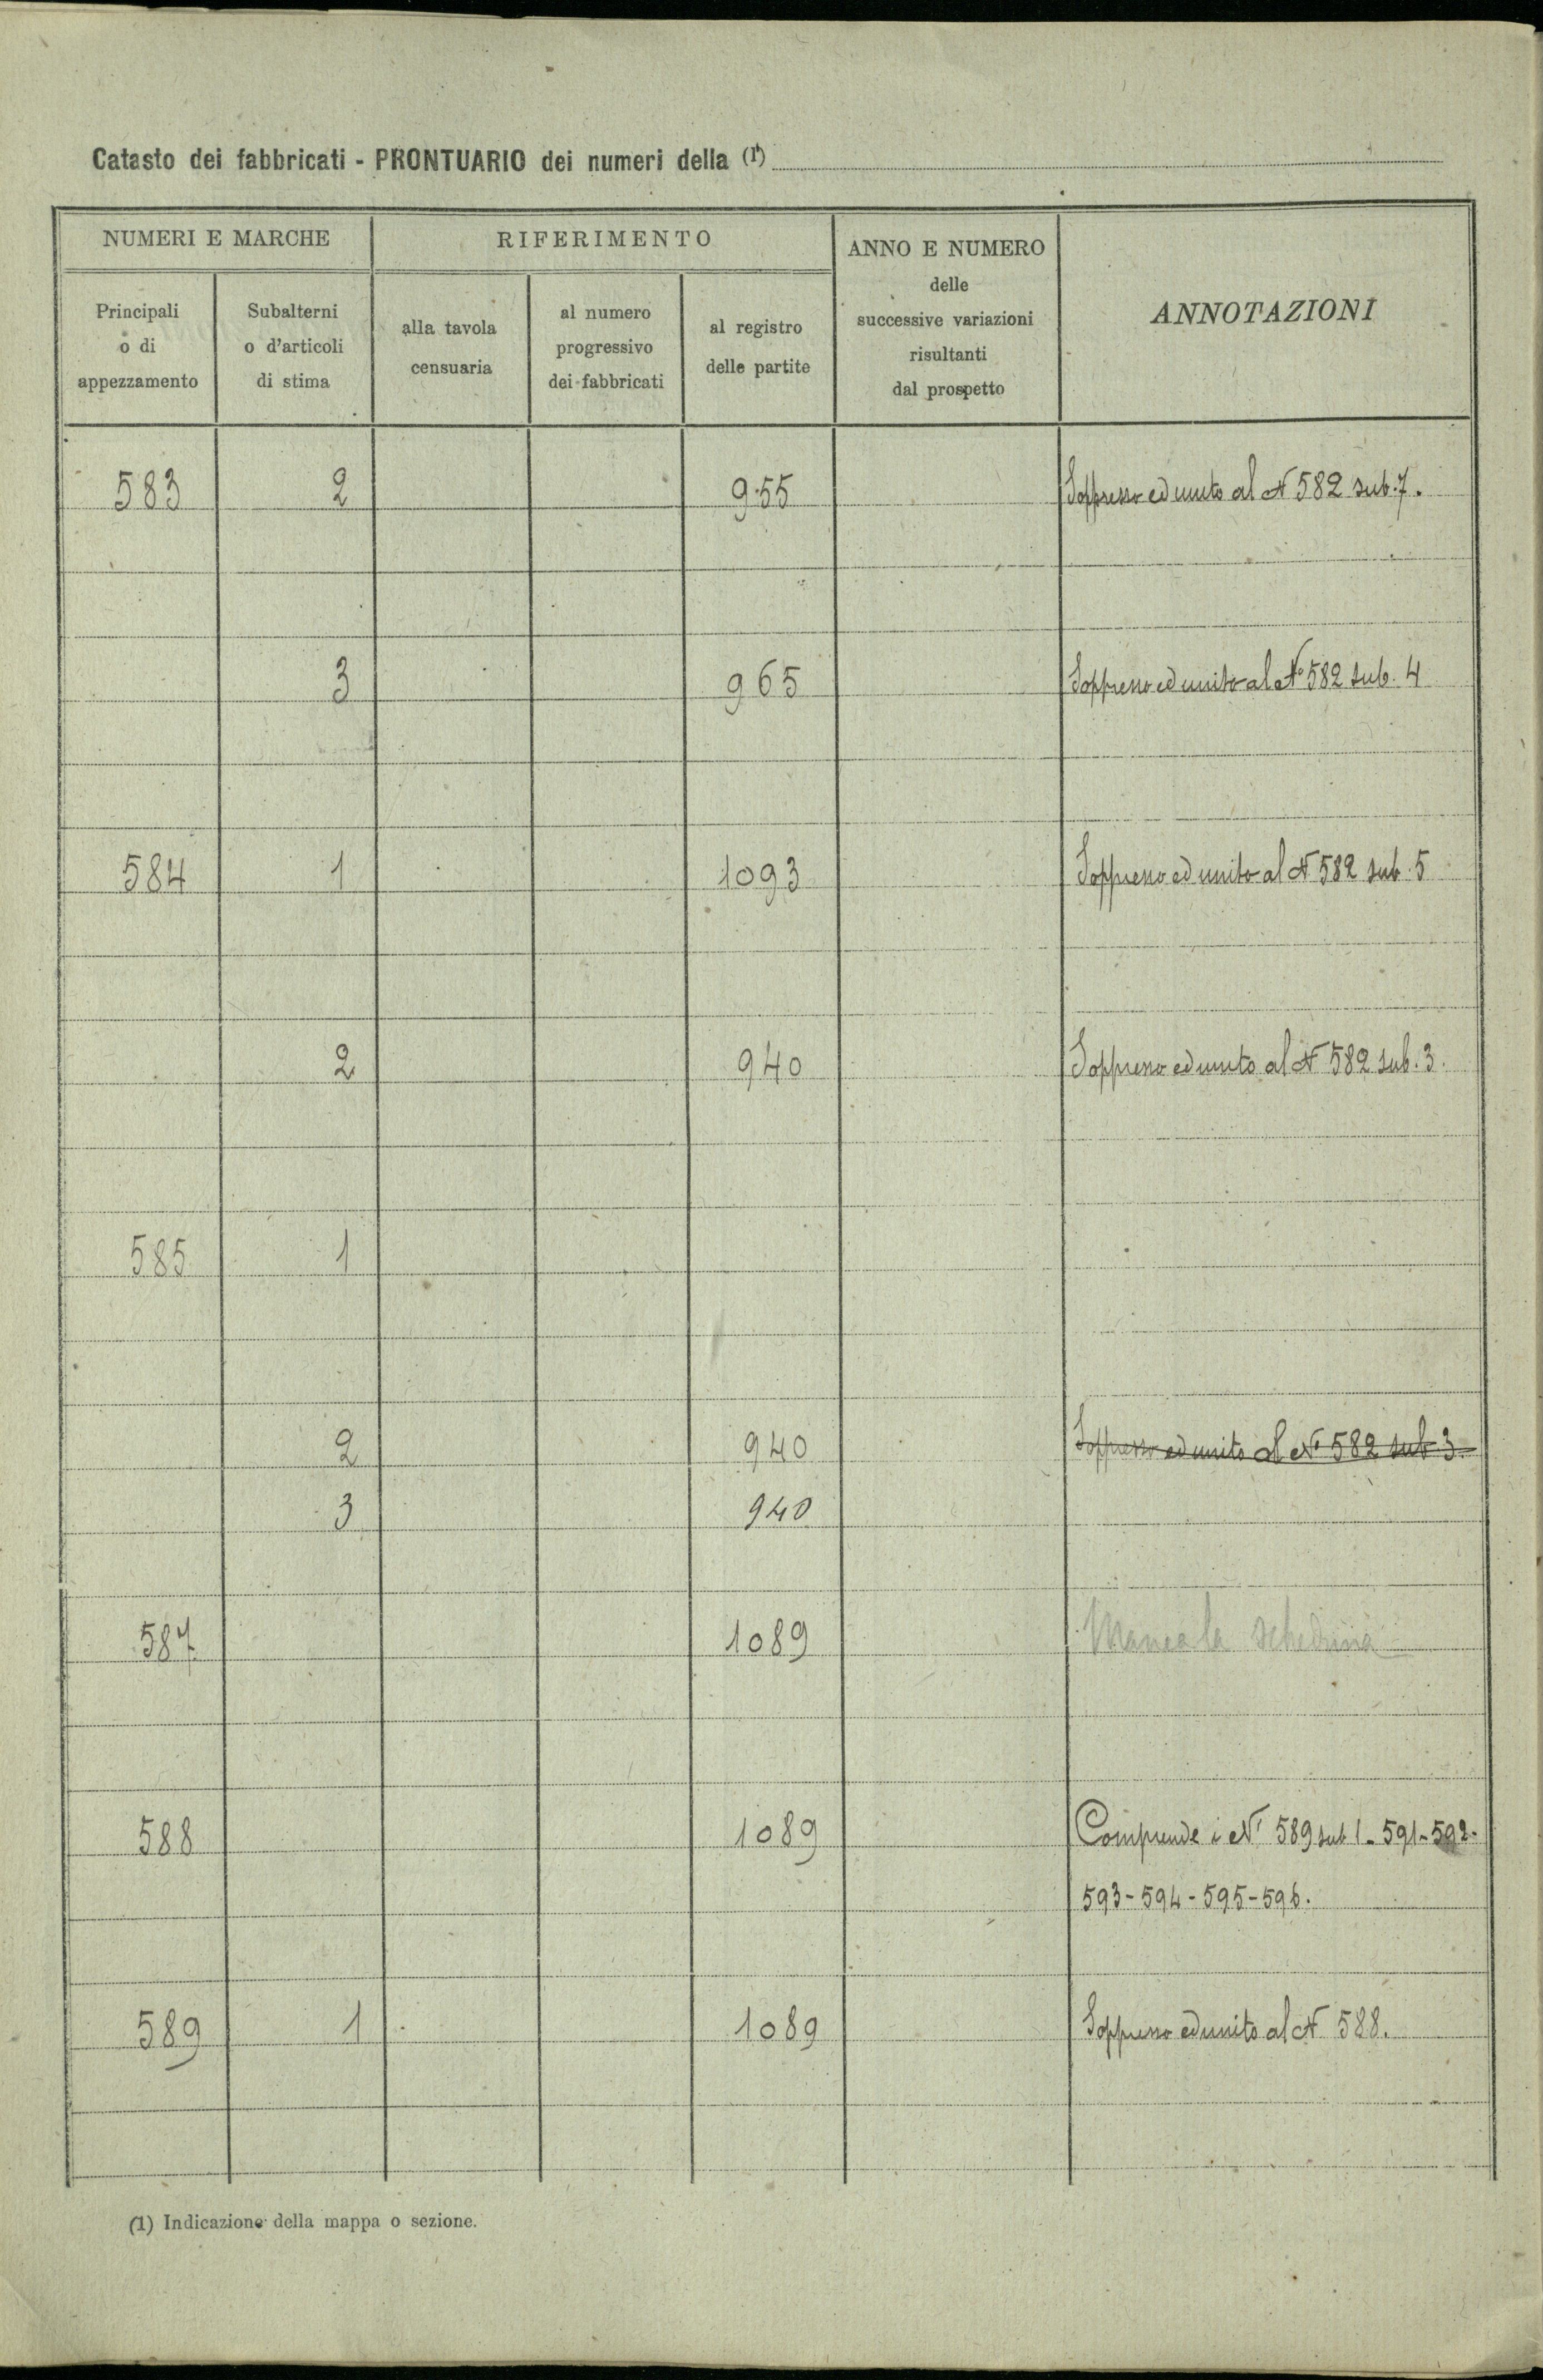 Catasto dei fabbricati - PRONTUARIO dei numeri della (1)
NUMERI E MARCHE
RIFERIMENTO
ANNO E NUMERO
delle
successive variazioni
risultanti
dal prospetto
ANNOTAZIONI
Principali
o di
appezzamento
Subalterni
o d'articoli
di stima
alla tavola
censuaria
al numero
progressivo
dei fabbricati
al registro
delle partite
583 2 955 Soppresso ed unito al N 582 sub. 7.
3 965 Soppresso ed unito al N° 582 sub. 4
584 1 1093 Soppresso ed unito al N 582 sub. 5
2 940 Soppresso ed unito al N 582 sub. 3.
585 1
2 940 Soppresso ed unito al N° 582 sub 3.
3 940
587 1089 Manca la schedina
588 1089 Comprende i Ni 589 sub 1 - 591 - 592 -
593 - 594 - 595 - 596.
589 1 1089 Soppresso ed unito al N 588.
(1) Indicazione della mappa o sezione.